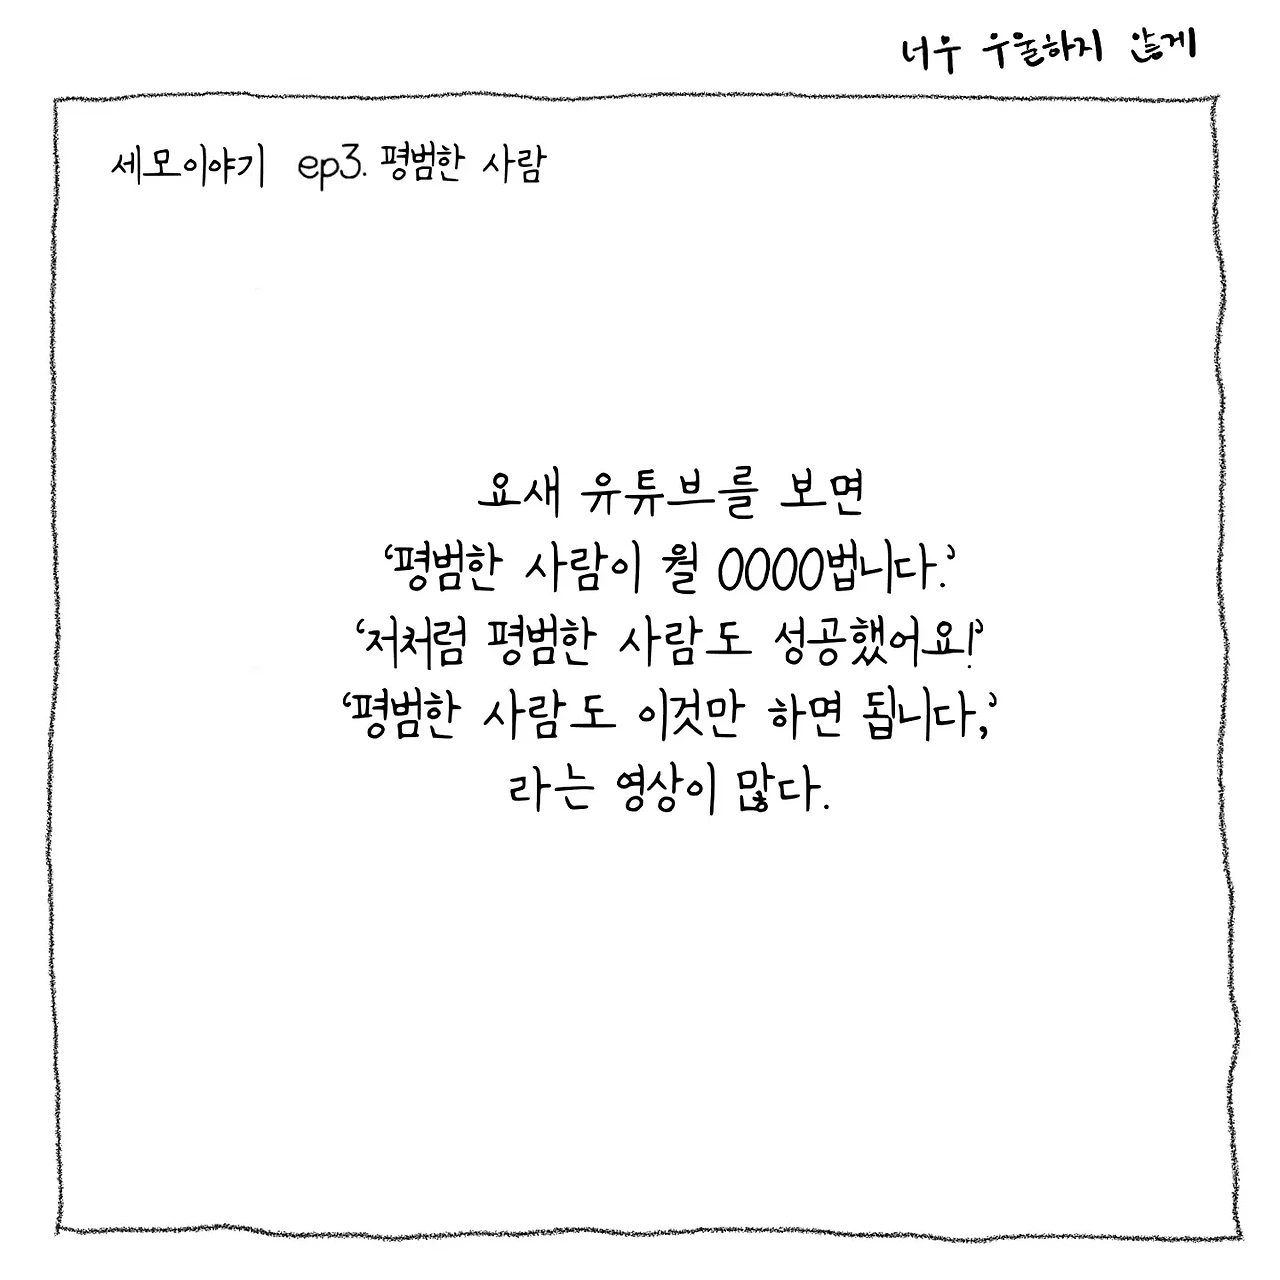 너우 우울하지 않게
세모이야기 ep3. 평범한 사람
요새 유튜브를 보면
‘평범한 사람이 월 0000법니다.’
‘저처럼 평범한 사람도 성공했어요!’
‘평범한 사람도 이것만 하면 됩니다,’
라는 영상이 많다.